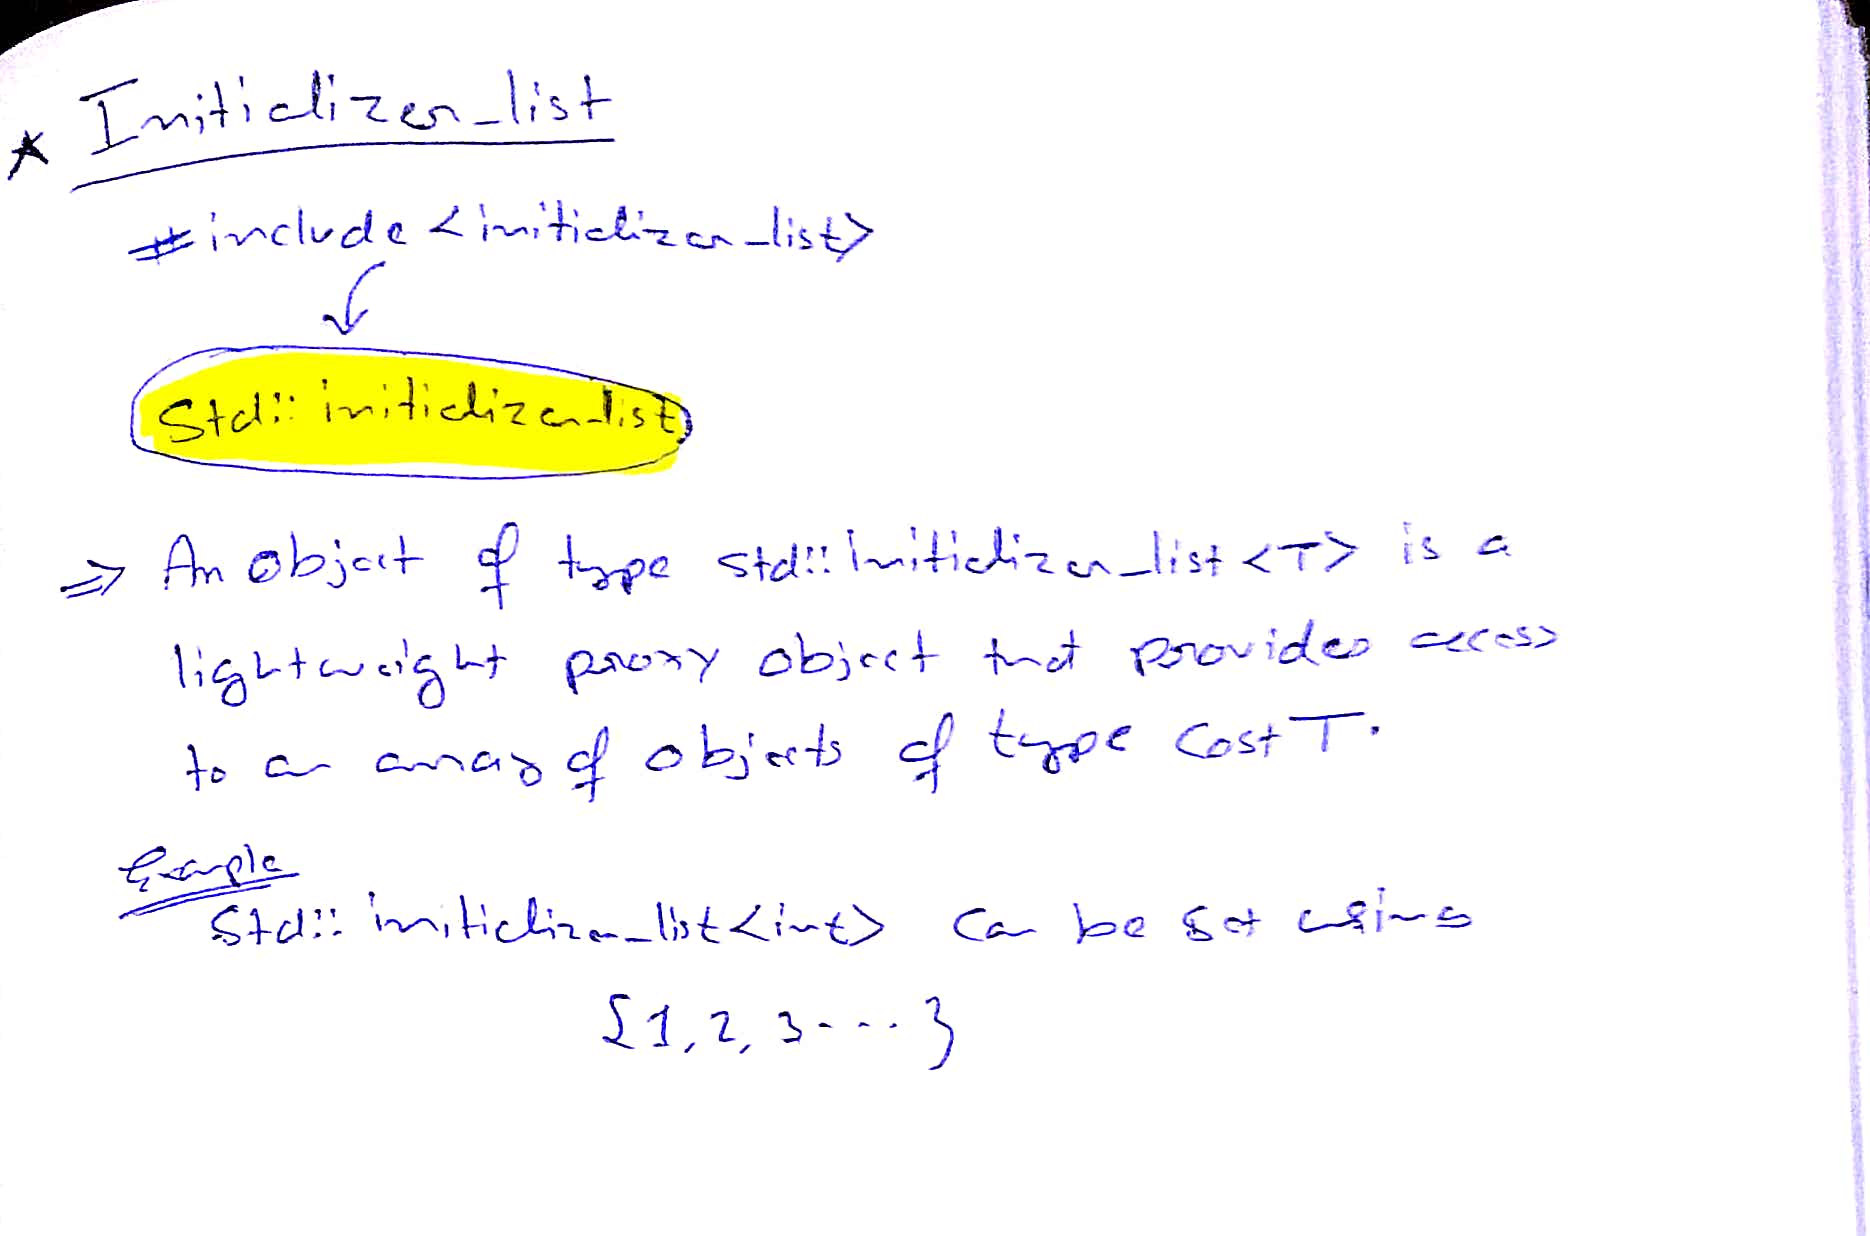 * Initializer_list
#include <initializer_list>
std:: initializer_list
⇒ An object of type std:: initializer_list <T> is a
lightweight proxy object that provides access
to an array of objects of type Cost T.
Example
std:: initializer_list <int> can be set using
{1, 2, 3 ---- }